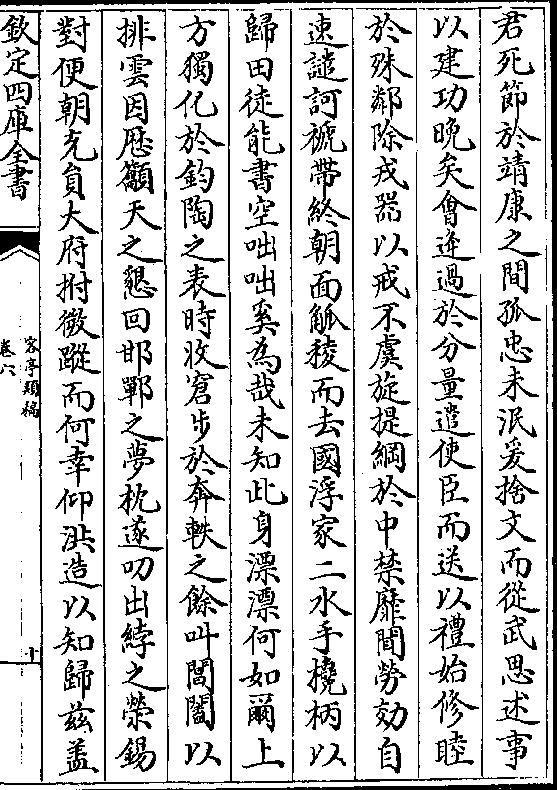 君死節於靖康之間孤忠未泯爰捨文而從武思述事
以建功晚矣會逢過於分量遣使臣而送以禮始修睦
於殊鄰除戎器以戒不虞旋提綱於中禁靡聞勞効自
速譴訶褫帶終朝面觚稜而去國浮家二水手橈柄以
歸田徒能書空咄咄奚為哉未知此身漂漂何如爾上
方獨化於鈞陶之表時收窘步於奔軼之餘叫閶闔以
排雲因歴籲天之懇回邯鄲之夢枕遂叨出綍之榮錫
對便朝充員大府拊微蹤而何幸仰洪造以知歸兹盖
欽定四庫全書
客亭類稿
卷六
十